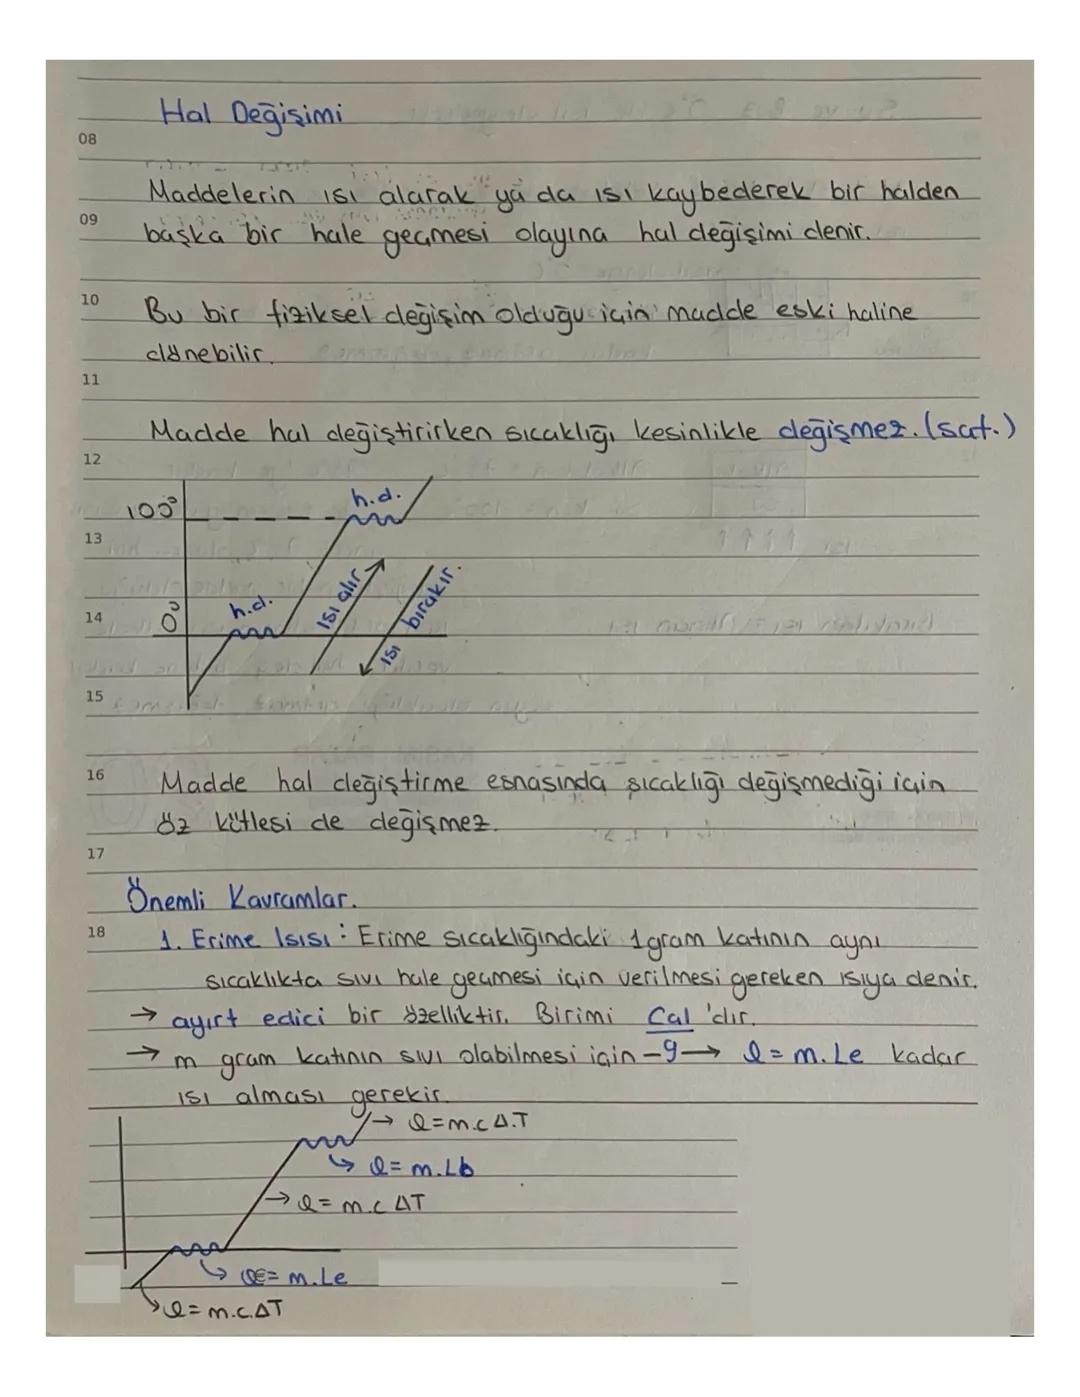 Hal Değişimi
08
Maddelerin ısı alarak ya da ısı kaybederek bir halden
09
başka bir hale geçmesi olayına hal değişimi denir.
10
Bu bir fiziksel değişim olduğu için madde eski haline
dönebilir.
11
Madde hal değiştirirken sıcaklığı kesinlikle değişmez. (saf.)
12
100°
h.d.
13
ısı alır
ısı bırakır.
h.d.
14
0°
15
16
Madde hal değiştirme esnasında sıcaklığı değişmediği için
öz kütlesi de değişmez.
17
Önemli Kavramlar.
18
1. Erime Isısı : Erime sıcaklığındaki 1 gram katının aynı
sıcaklıkta sıvı hale geçmesi için verilmesi gereken ısıya denir.
→ ayırt edici bir özelliktir. Birimi Cal 'dır.
→ m gram katının sıvı olabilmesi için -9→ Q = m.Le kadar
ısı alması gerekir.
→ Q=m.c Δ.T
↳ Q= m.Lb
→ Q= m.c ΔT
↳ Q= m.Le
↘ Q= m.c.ΔT